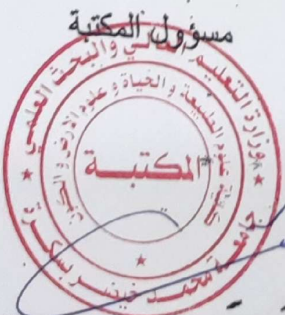 مسؤول المكتبة
وزارة التعليم العالي والبحث العلمي
علوم الطبيعة و الحياة و علوم الأرض و الكون
المكتبـــة
جامعة محمد خيضر بسكرة